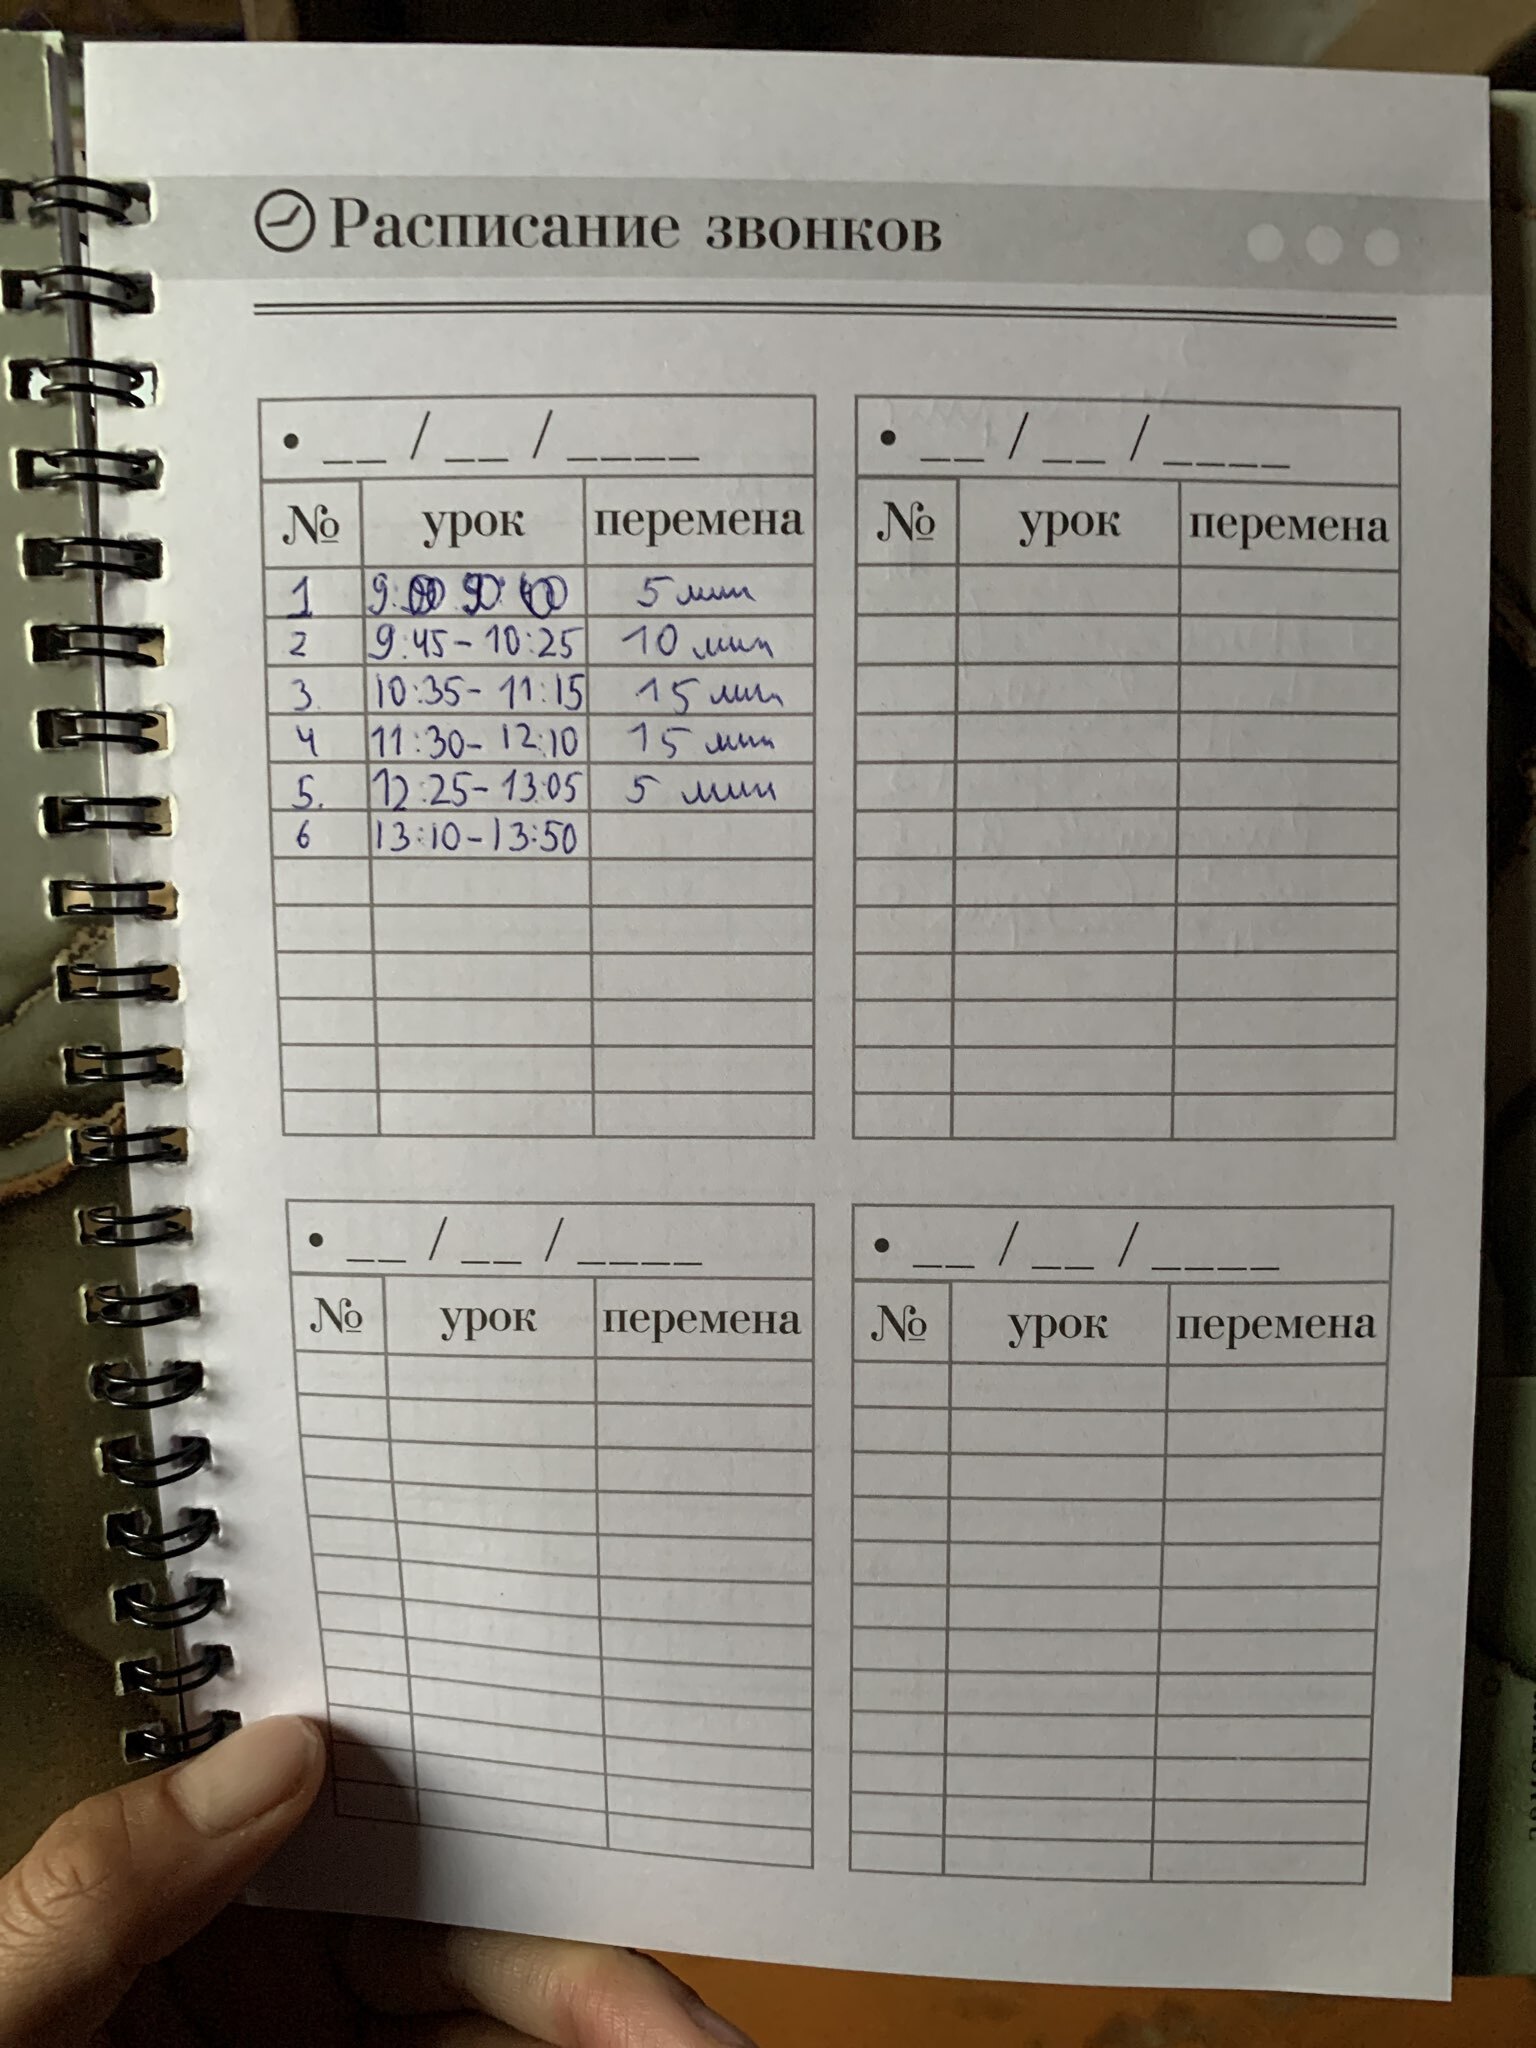 Расписание звонков
• __ / __ / ____
№ урок перемена
1 9:00 9:40 5 мин
2 9:45 - 10:25 10 мин
3. 10:35 - 11:15 15 мин
4 11:30 - 12:10 15 мин
5. 12:25 - 13:05 5 мин
6 13:10 - 13:50
• __ / __ / ____
№ урок перемена
• __ / __ / ____
№ урок перемена
• __ / __ / ____
№ урок перемена